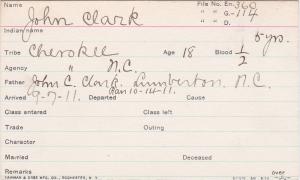 Name File No. En. 360
John Clark " " G. -114
Indian name " " D.
5 yrs.
Tribe Cherokee Age 18 Blood 1/2
Agency " N.C.
Father John C. Clark. Lumberton. N.C.
Arrived 9-7-11. Departed Ran 10-14-11. Cause
Class entered Class left
Trade Outing
Character
Married Deceased
Remarks over